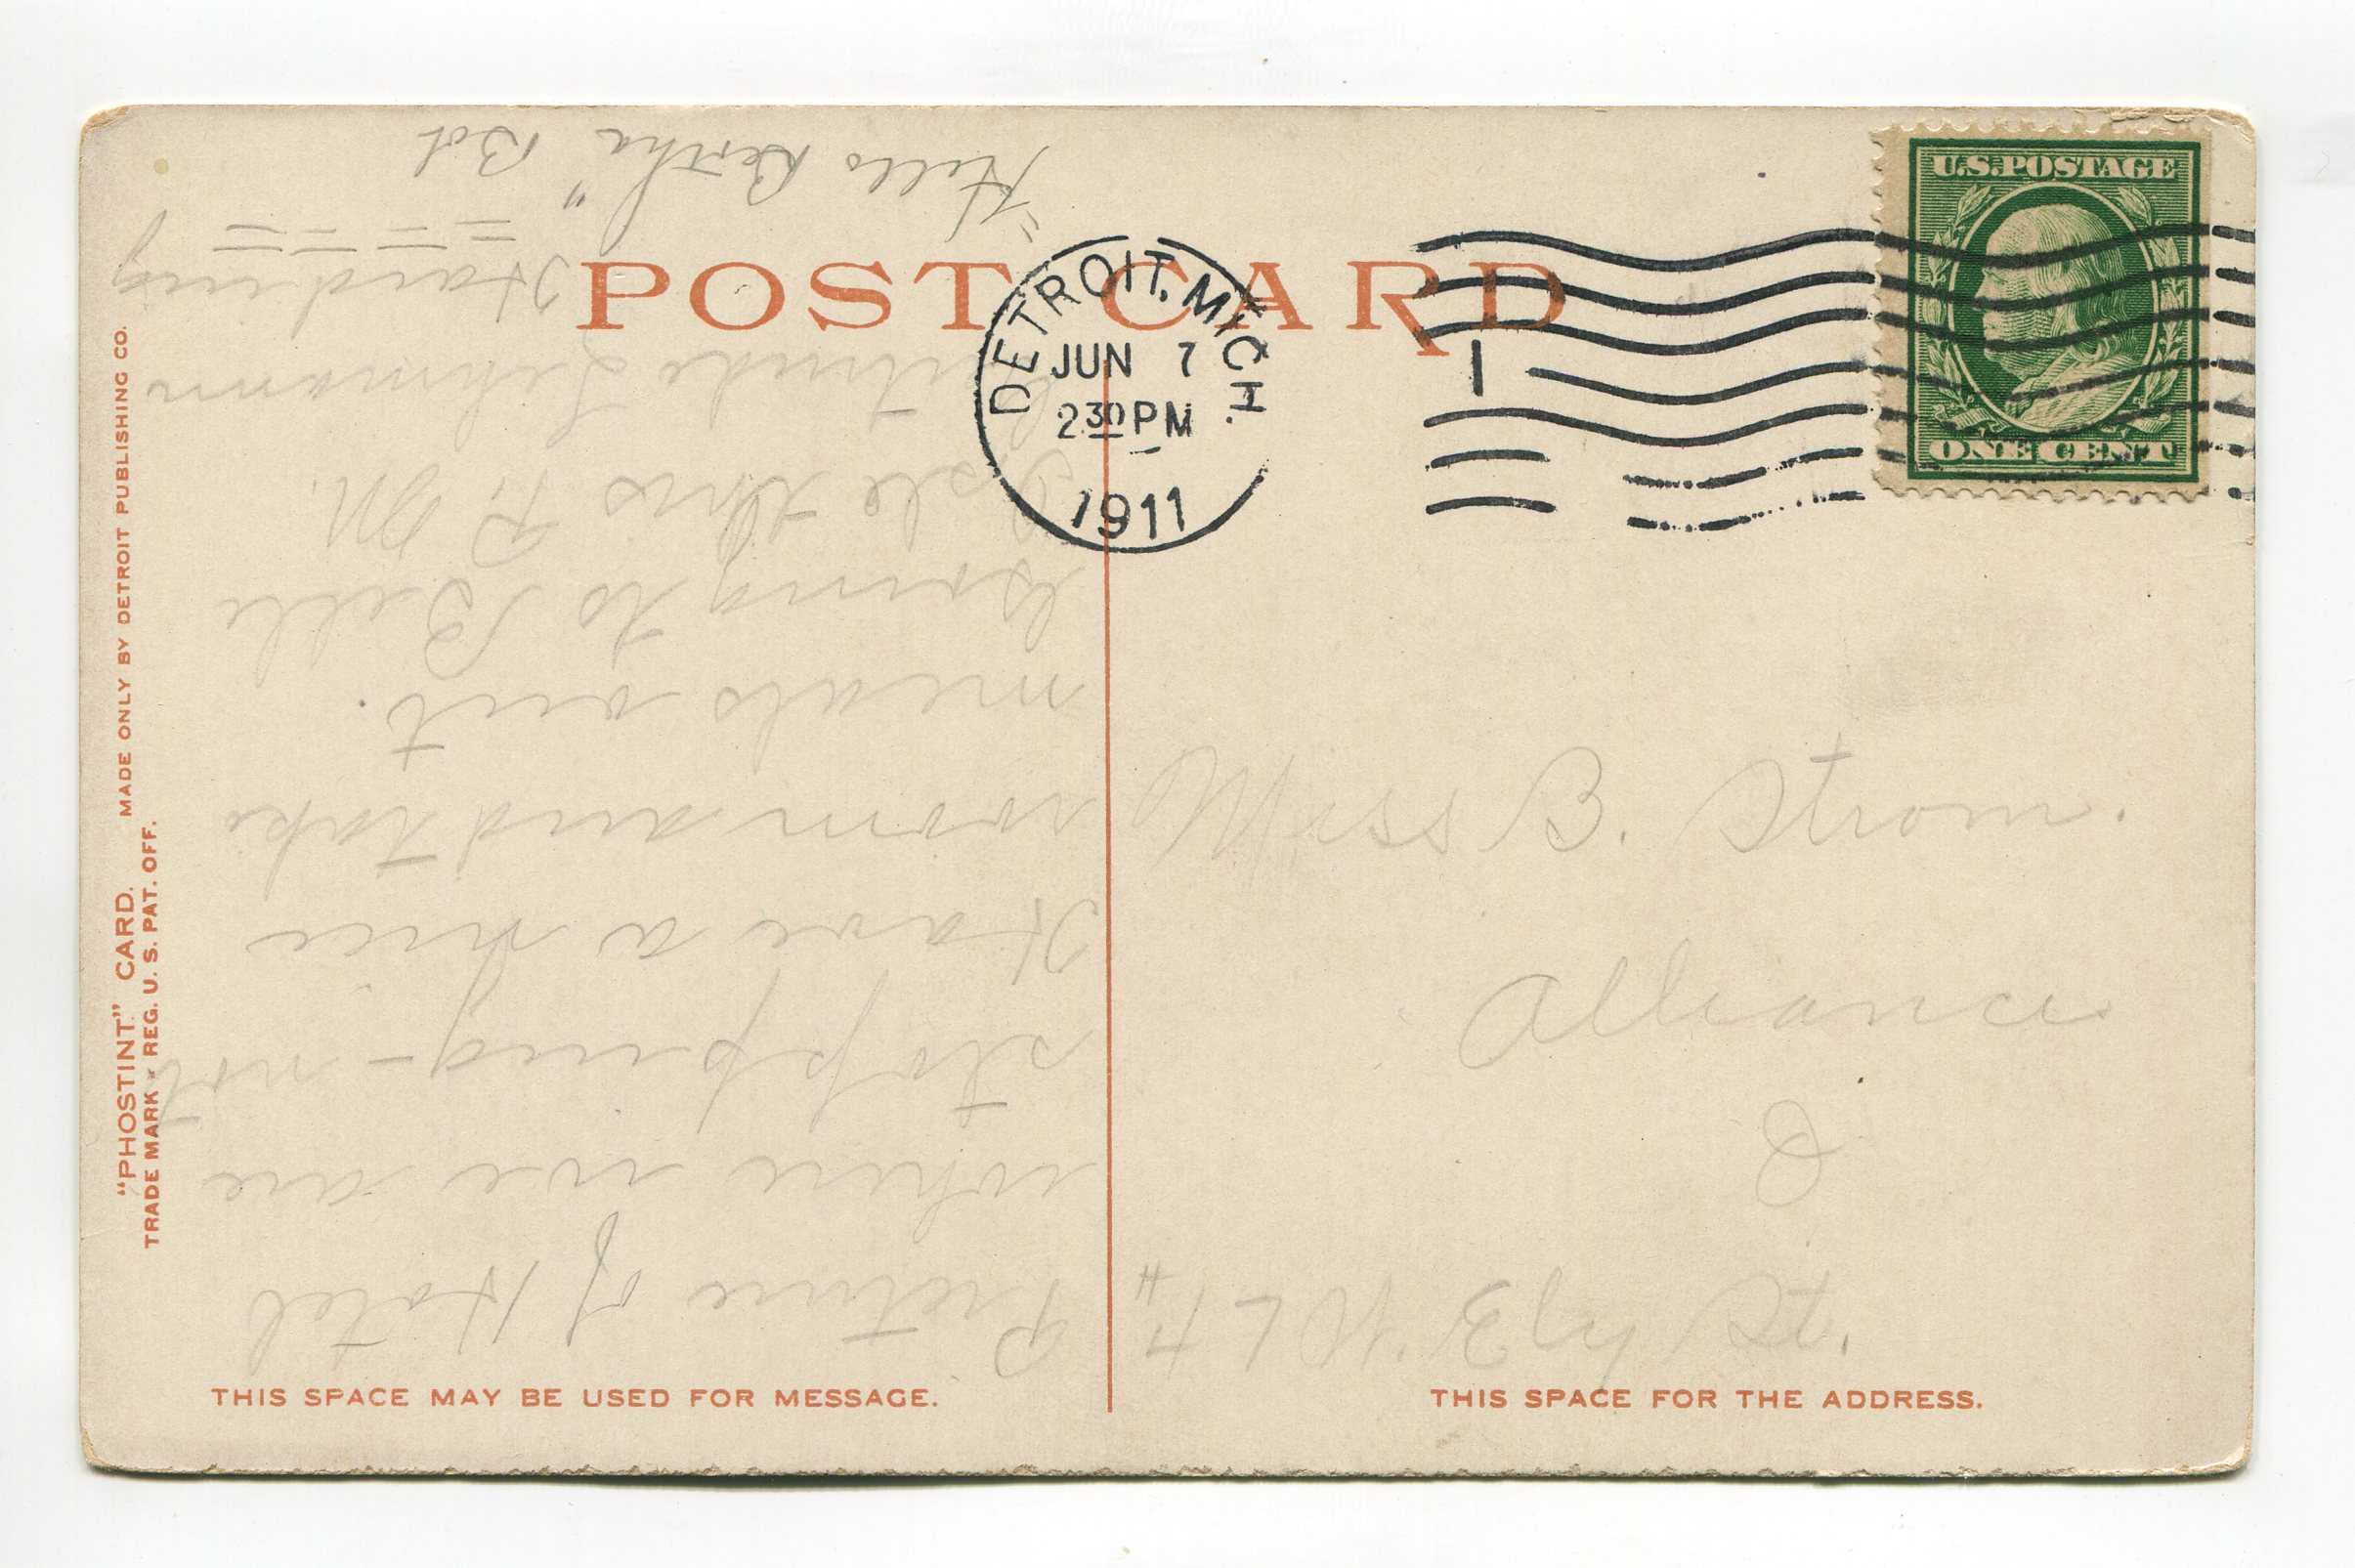 POST CARD
U.S. POSTAGE
ONE CENT
DETROIT, MICH.
JUN 7
2 30 PM
1911
1
Picture of Hotel
where we are
stopping - not
Have a nice
room and take
meals out.
Going to Belle
Isle this P. M.
Lehmann
Harding
"Hello Bertha"
Miss B. Strom.
Alliance
O
"PHOSTINT" CARD. MADE ONLY BY DETROIT PUBLISHING CO.
TRADE MARK REG. U. S. PAT. OFF.
THIS SPACE MAY BE USED FOR MESSAGE.
THIS SPACE FOR THE ADDRESS.